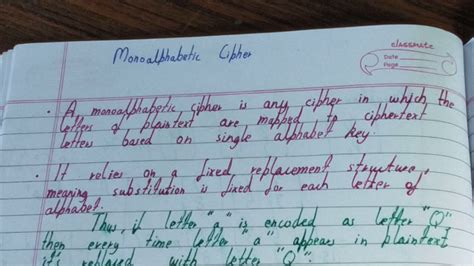 Monoalphabetic Cipher
classmate
Date
Page
• A monoalphabetic cipher is any cipher in which the
letters of plaintext are mapped to ciphertext
letters based on single alphabet key.
• It relies on a fixed replacement structure,
meaning substitution is fixed for each letter of
alphabet.
Thus, if letter "a" is encoded as letter "Q",
then every time letter "a" appears in plaintext
it's replaced with letter "Q".